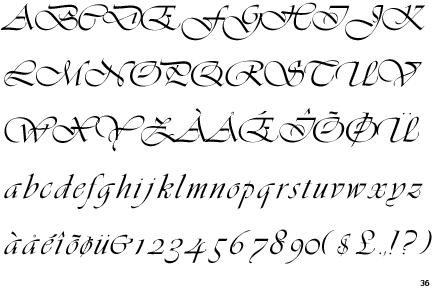 ABCDEFGHIJK
LMNOPQRSTUV
WXYZÀÅÉÎÕØÜ
abcdefghijklmnopqrstuvwxyz
àåéîõøü&1234567890($£.,!?)
36